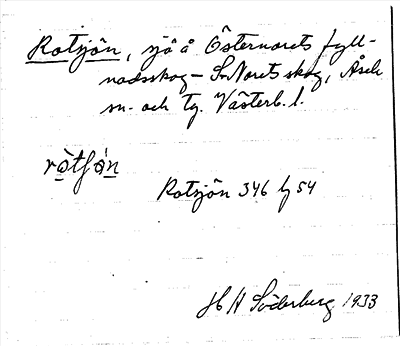 Rotsjön, sjö å Östernorets fyll-
nadsskog – S. Norets skog, Åsele
sn. och tg. Västerb. l.
Rotsjön 346 54
H Söderberg 1933